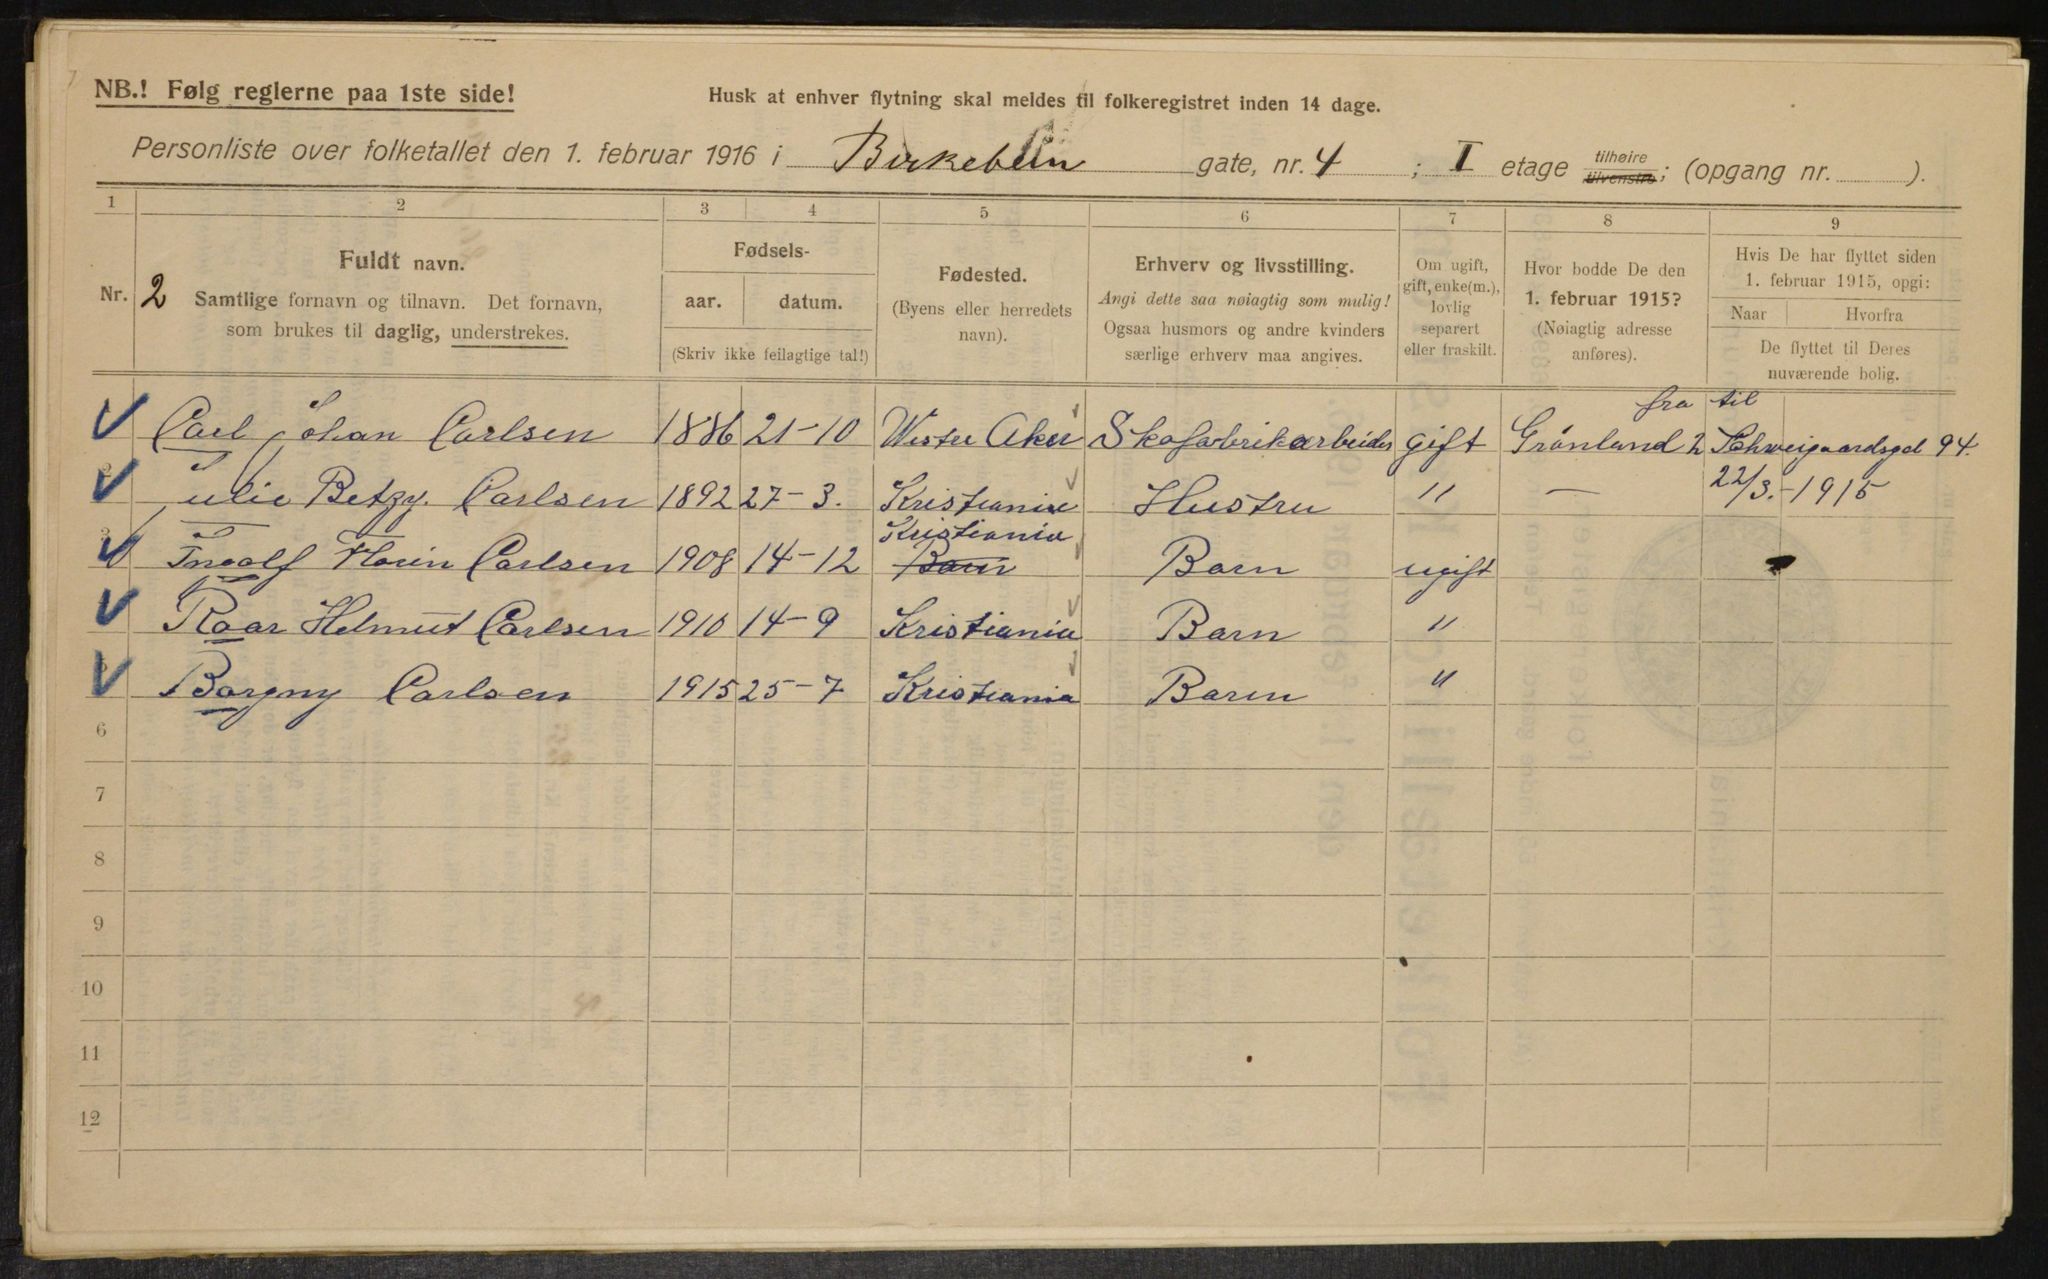 NB.! Følg reglerne paa 1ste side!
Husk at enhver flytning skal meldes til folkeregistret inden 14 dage.
Personliste over folketallet den 1. februar 1916 i Birkebein gate, nr. 4 ; I etage tilhøire tilvenstre; (opgang nr. ).
1 2 3 4 5 6 7 8 9
Nr. 2
Fuldt navn.
Samtlige fornavn og tilnavn. Det fornavn,
som brukes til daglig, understrekes.
Fødsels-
aar. datum.
(Skriv ikke feilagtige tal!)
Fødested.
(Byens eller herredets
navn).
Erhverv og livsstilling.
Angi dette saa nøiagtig som mulig!
Ogsaa husmors og andre kvinders
særlige erhverv maa angives.
Om ugift,
gift, enke(m.),
lovlig
separert
eller fraskilt.
Hvor bodde De den
1. februar 1915?
(Nøiagtig adresse
anføres).
Hvis De har flyttet siden
1. februar 1915, opgi:
Naar Hvorfra
De flyttet til Deres
nuværende bolig.
fra til
Carl Johan Carlsen 1886 21-10 Wester Aker Skofabrikarbeider gift Grönland 2 Schweigaardsgd 94.
Julie Betzy. Carlsen 1892 27-3. Kristiania Hustru " — 22/3.-1915
Kristiania
Ingolf Carlsen 1908 14-12 Barn Barn ugift
Roar Helmut Carlsen 1910 14-9 Kristiania Barn "
Borgny Carlsen 1915 25-7 Kristiania Barn "
6
7
8
9
10
11
12